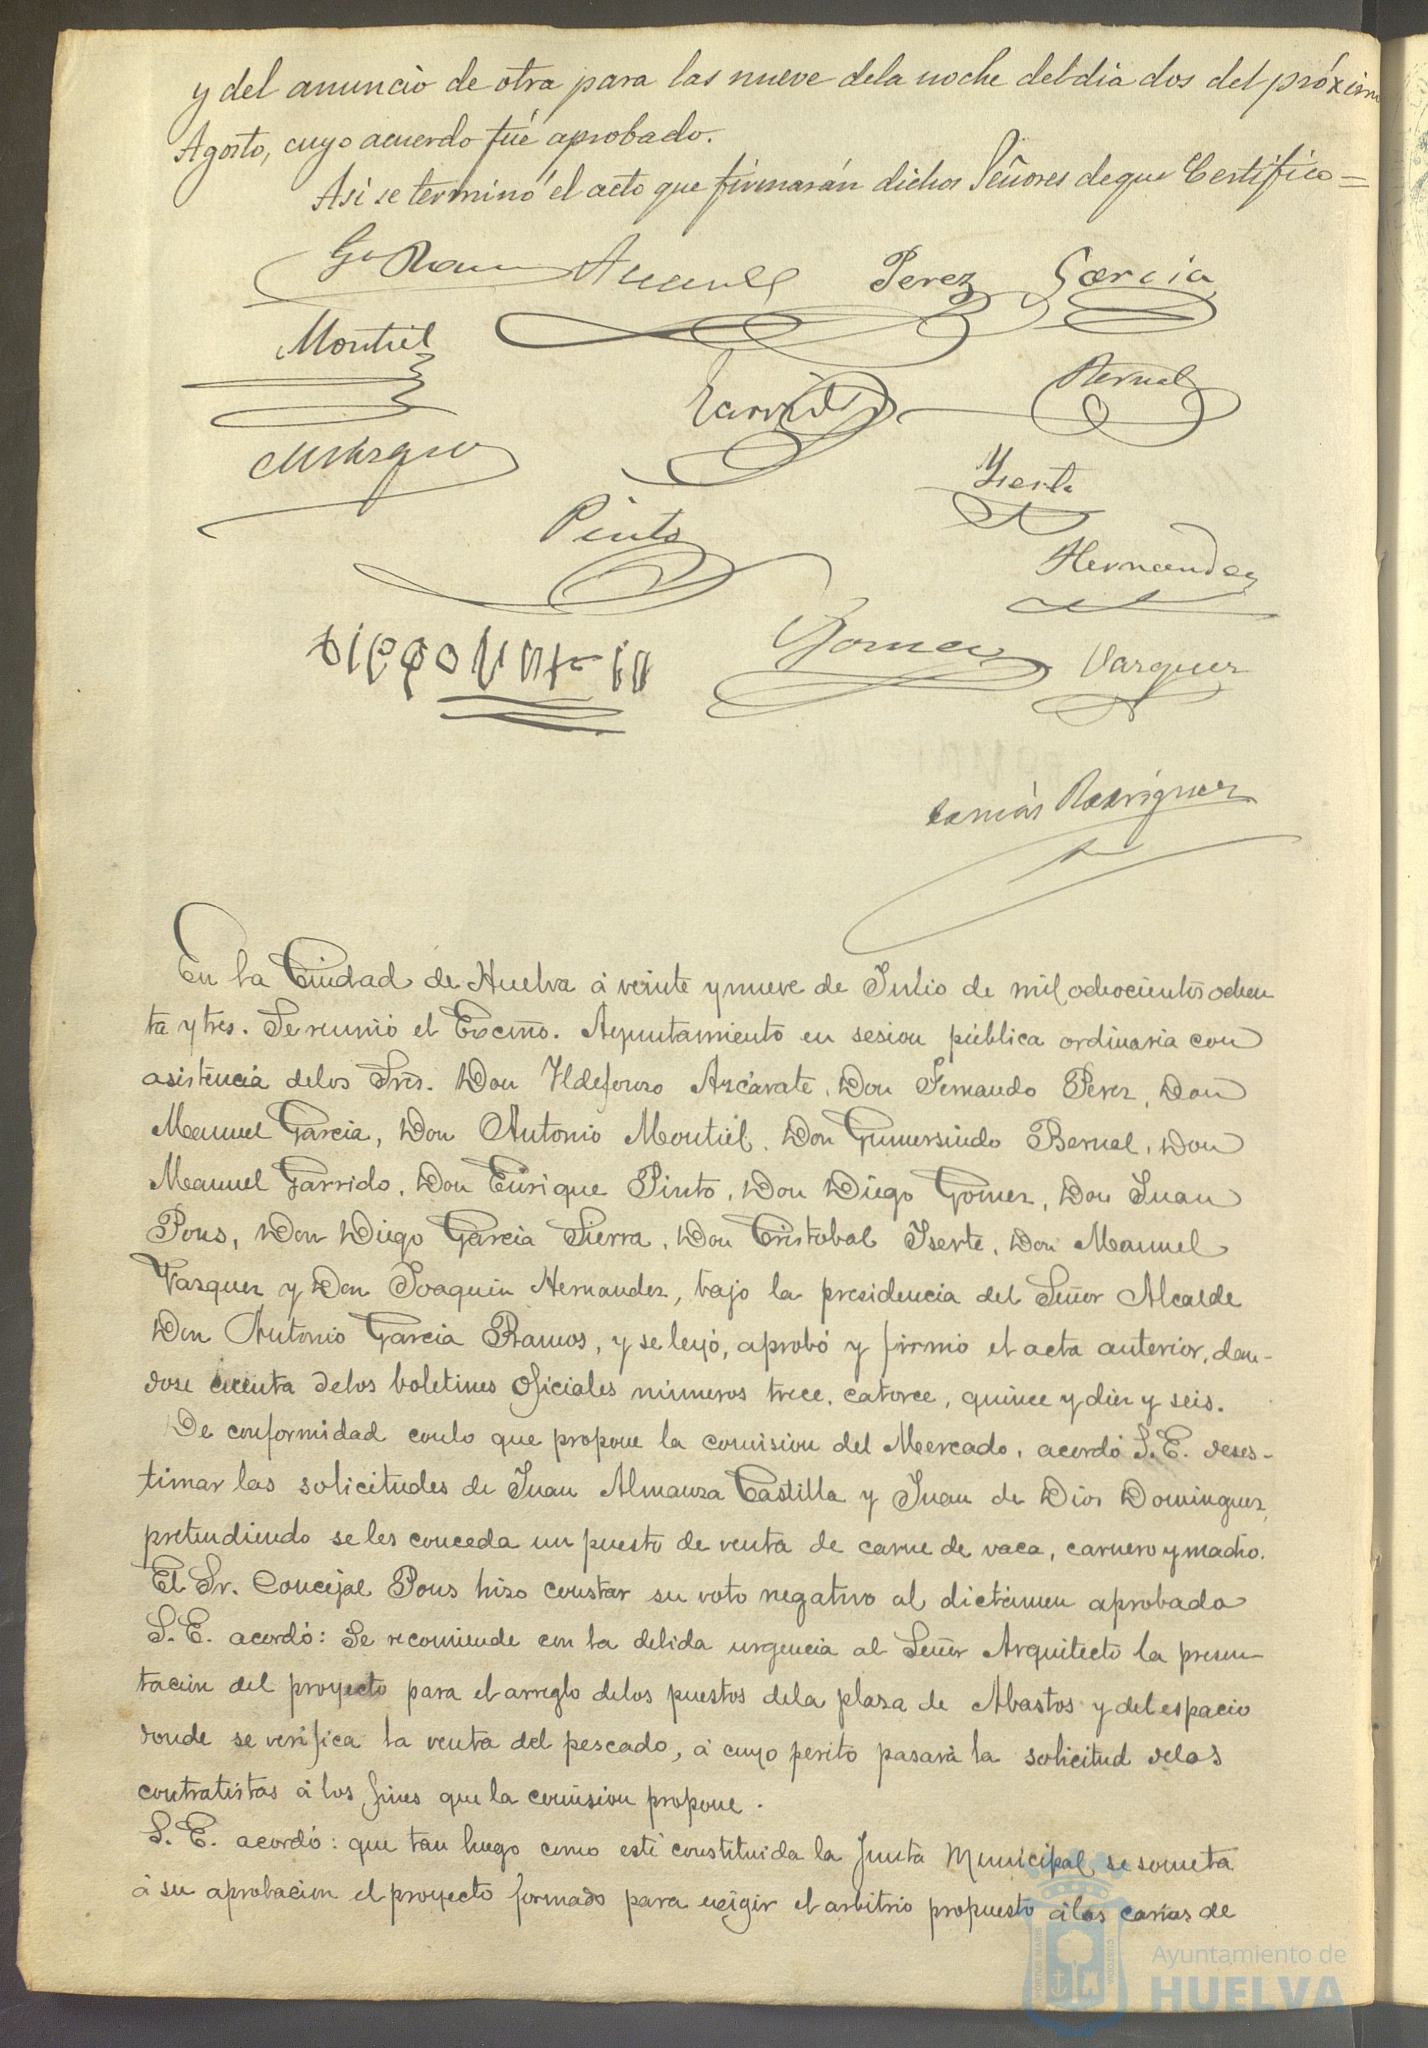 y del anuncio de otra para las nueve dela noche del dia dos del próximo
Agosto, cuyo acuerdo fué aprobado.
Asi se terminó el acto que firmarán dichos Señores de que Certifico =
Perez Garcia
Montiel
Garrido Bernal
Yserte
Pinto
Hernandez
Gomez Vazquez
Tomás Rodriguez
En la Ciudad de Huelva á veinte y nueve de Julio de mil ochocientos ochen
ta y tres. Se reunió el Excmo. Ayuntamiento en sesion pública ordinaria con
asistencia delos Sres. Don Yldefonso Azcárate, Don Fernando Perez, Don
Manuel Garcia, Don Antonio Montiel, Don Gumersindo Bernal, Don
Manuel Garrido, Don Enrique Pinto, Don Diego Gomez, Don Juan
Pons, Don Diego Garcia Sierra, Don Cristobal Yserte, Don Manuel
Vazquez y Don Joaquin Hernandez, bajo la presidencia del Señor Alcalde
Don Antonio Garcia Ramos, y se leyó, aprobó y firmó el acta anterior, dan-
dose cuenta delos boletines oficiales números trece, catorce, quince y diez y seis.
De conformidad conlo que propone la comision del Mercado, acordó S.E. deses-
timar las solicitudes de Juan Almanza Castilla y Juan de Dios Dominguez,
pretendiendo se les conceda un puesto de venta de carne de vaca, carnero y macho.
El Sr. Concejal Pons hizo constar su voto negativo al dictámen aprobado
S.E. acordó: Se recomiende con la debida urgencia al Señor Arquitecto la presen-
tacion del proyecto para el arreglo delos puestos dela plaza de Abastos y del espacio
donde se verifica la venta del pescado, á cuyo perito pasará la solicitud delos
contratistas á los fines que la comision propone.
S.E. acordó: que tan luego como esté constituida la Junta Municipal, se someta
á su aprobacion el proyecto formado para exigir el arbitrio propuesto álas carnes de
Ayuntamiento de
HUELVA